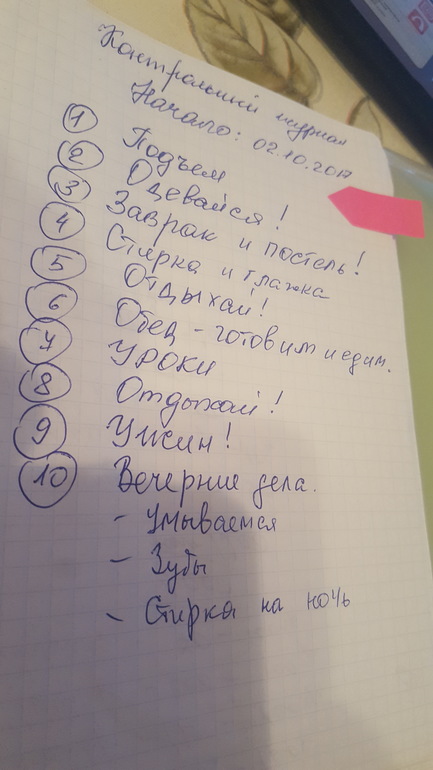 Контрольный журнал
Начало: 02.10.2017
1 Подъем
2 Одевайся!
3 Заврак и постель!
4 Стирка и глажка
5 Отдыхай!!
6 Обед - готовим и едим.
7 Уроки
8 Отдыхай!
9 Ужин!
10 Вечерние дела.
- Умываемся
- Зубы
- Стирка на ночь